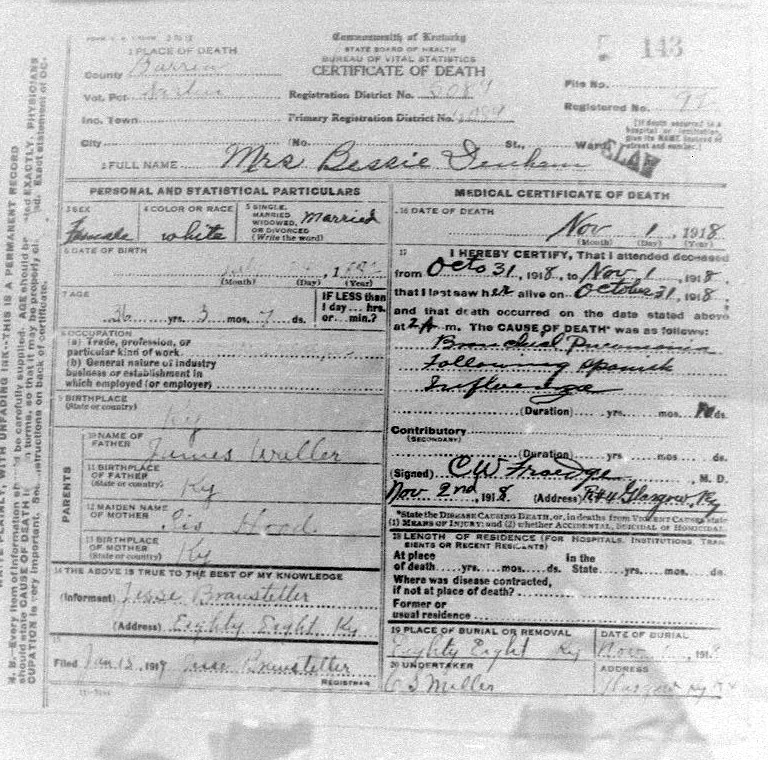 Commonwealth of Kentucky
STATE BOARD OF HEALTH
BUREAU OF VITAL STATISTICS
CERTIFICATE OF DEATH
143
1 PLACE OF DEATH
County Barren
Vot. Pct.
Registration District No.
File No.
Inc. Town
Primary Registration District No.
Registered No.
City (No. St., Ward)
[If death occurred in a hospital or institution, give its NAME instead of street and number.]
2 FULL NAME Mrs Bessie Denham
PERSONAL AND STATISTICAL PARTICULARS
3 SEX Female
4 COLOR OR RACE white
5 SINGLE, MARRIED WIDOWED, OR DIVORCED (Write the word) Married
6 DATE OF BIRTH
(Month) (Day) (Year)
7 AGE
26 yrs. 3 mos. 7 ds.
IF LESS than 1 day... hrs. or... min.?
8 OCCUPATION
(a) Trade, profession, or
particular kind of work
(b) General nature of industry
business or establishment in
which employed (or employer)
9 BIRTHPLACE
(State or country) Ky
PARENTS
10 NAME OF FATHER James Waller
11 BIRTHPLACE OF FATHER (State or country) Ky
12 MAIDEN NAME OF MOTHER Hood
13 BIRTHPLACE OF MOTHER (State or country) Ky
14 THE ABOVE IS TRUE TO THE BEST OF MY KNOWLEDGE
(Informant) Jesse Branstetter
(Address) Eighty Eight Ky
15
Filed Jan 13, 1919 Jesse Branstetter
REGISTRAR
MEDICAL CERTIFICATE OF DEATH
16 DATE OF DEATH
Nov 1, 1918
(Month) (Day) (Year)
17 I HEREBY CERTIFY, That I attended deceased
from Octo 31, 1918, to Nov 1 1918,
that I last saw her alive on October 31, 1918,
and that death occurred on the date stated above
at 2 A m. The CAUSE OF DEATH* was as follows:
Bronchial Pneumonia
Following Spanish
Influenza
(Duration) yrs. mos. ds.
Contributory
(SECONDARY)
(Duration) yrs. mos. ds.
(Signed) C W Froedge, M. D.
Nov. 2nd, 1918 (Address) R#4 Glasgow, Ky
*State the DISEASE CAUSING DEATH, or, in deaths from VIOLENT CAUSES state
(1) MEANS OF INJURY; and (2) whether ACCIDENTAL, SUICIDAL or HOMICIDAL.
18 LENGTH OF RESIDENCE (FOR HOSPITALS, INSTITUTIONS, TRANSIENTS OR RECENT RESIDENTS)
At place of death yrs. mos. ds. In the State yrs. mos. ds.
Where was disease contracted,
if not at place of death?
Former or
usual residence
19 PLACE OF BURIAL OR REMOVAL
Eighty Eight Ky
DATE OF BURIAL
Nov 1, 191
20 UNDERTAKER
C S Miller
ADDRESS
Glasgow Ky